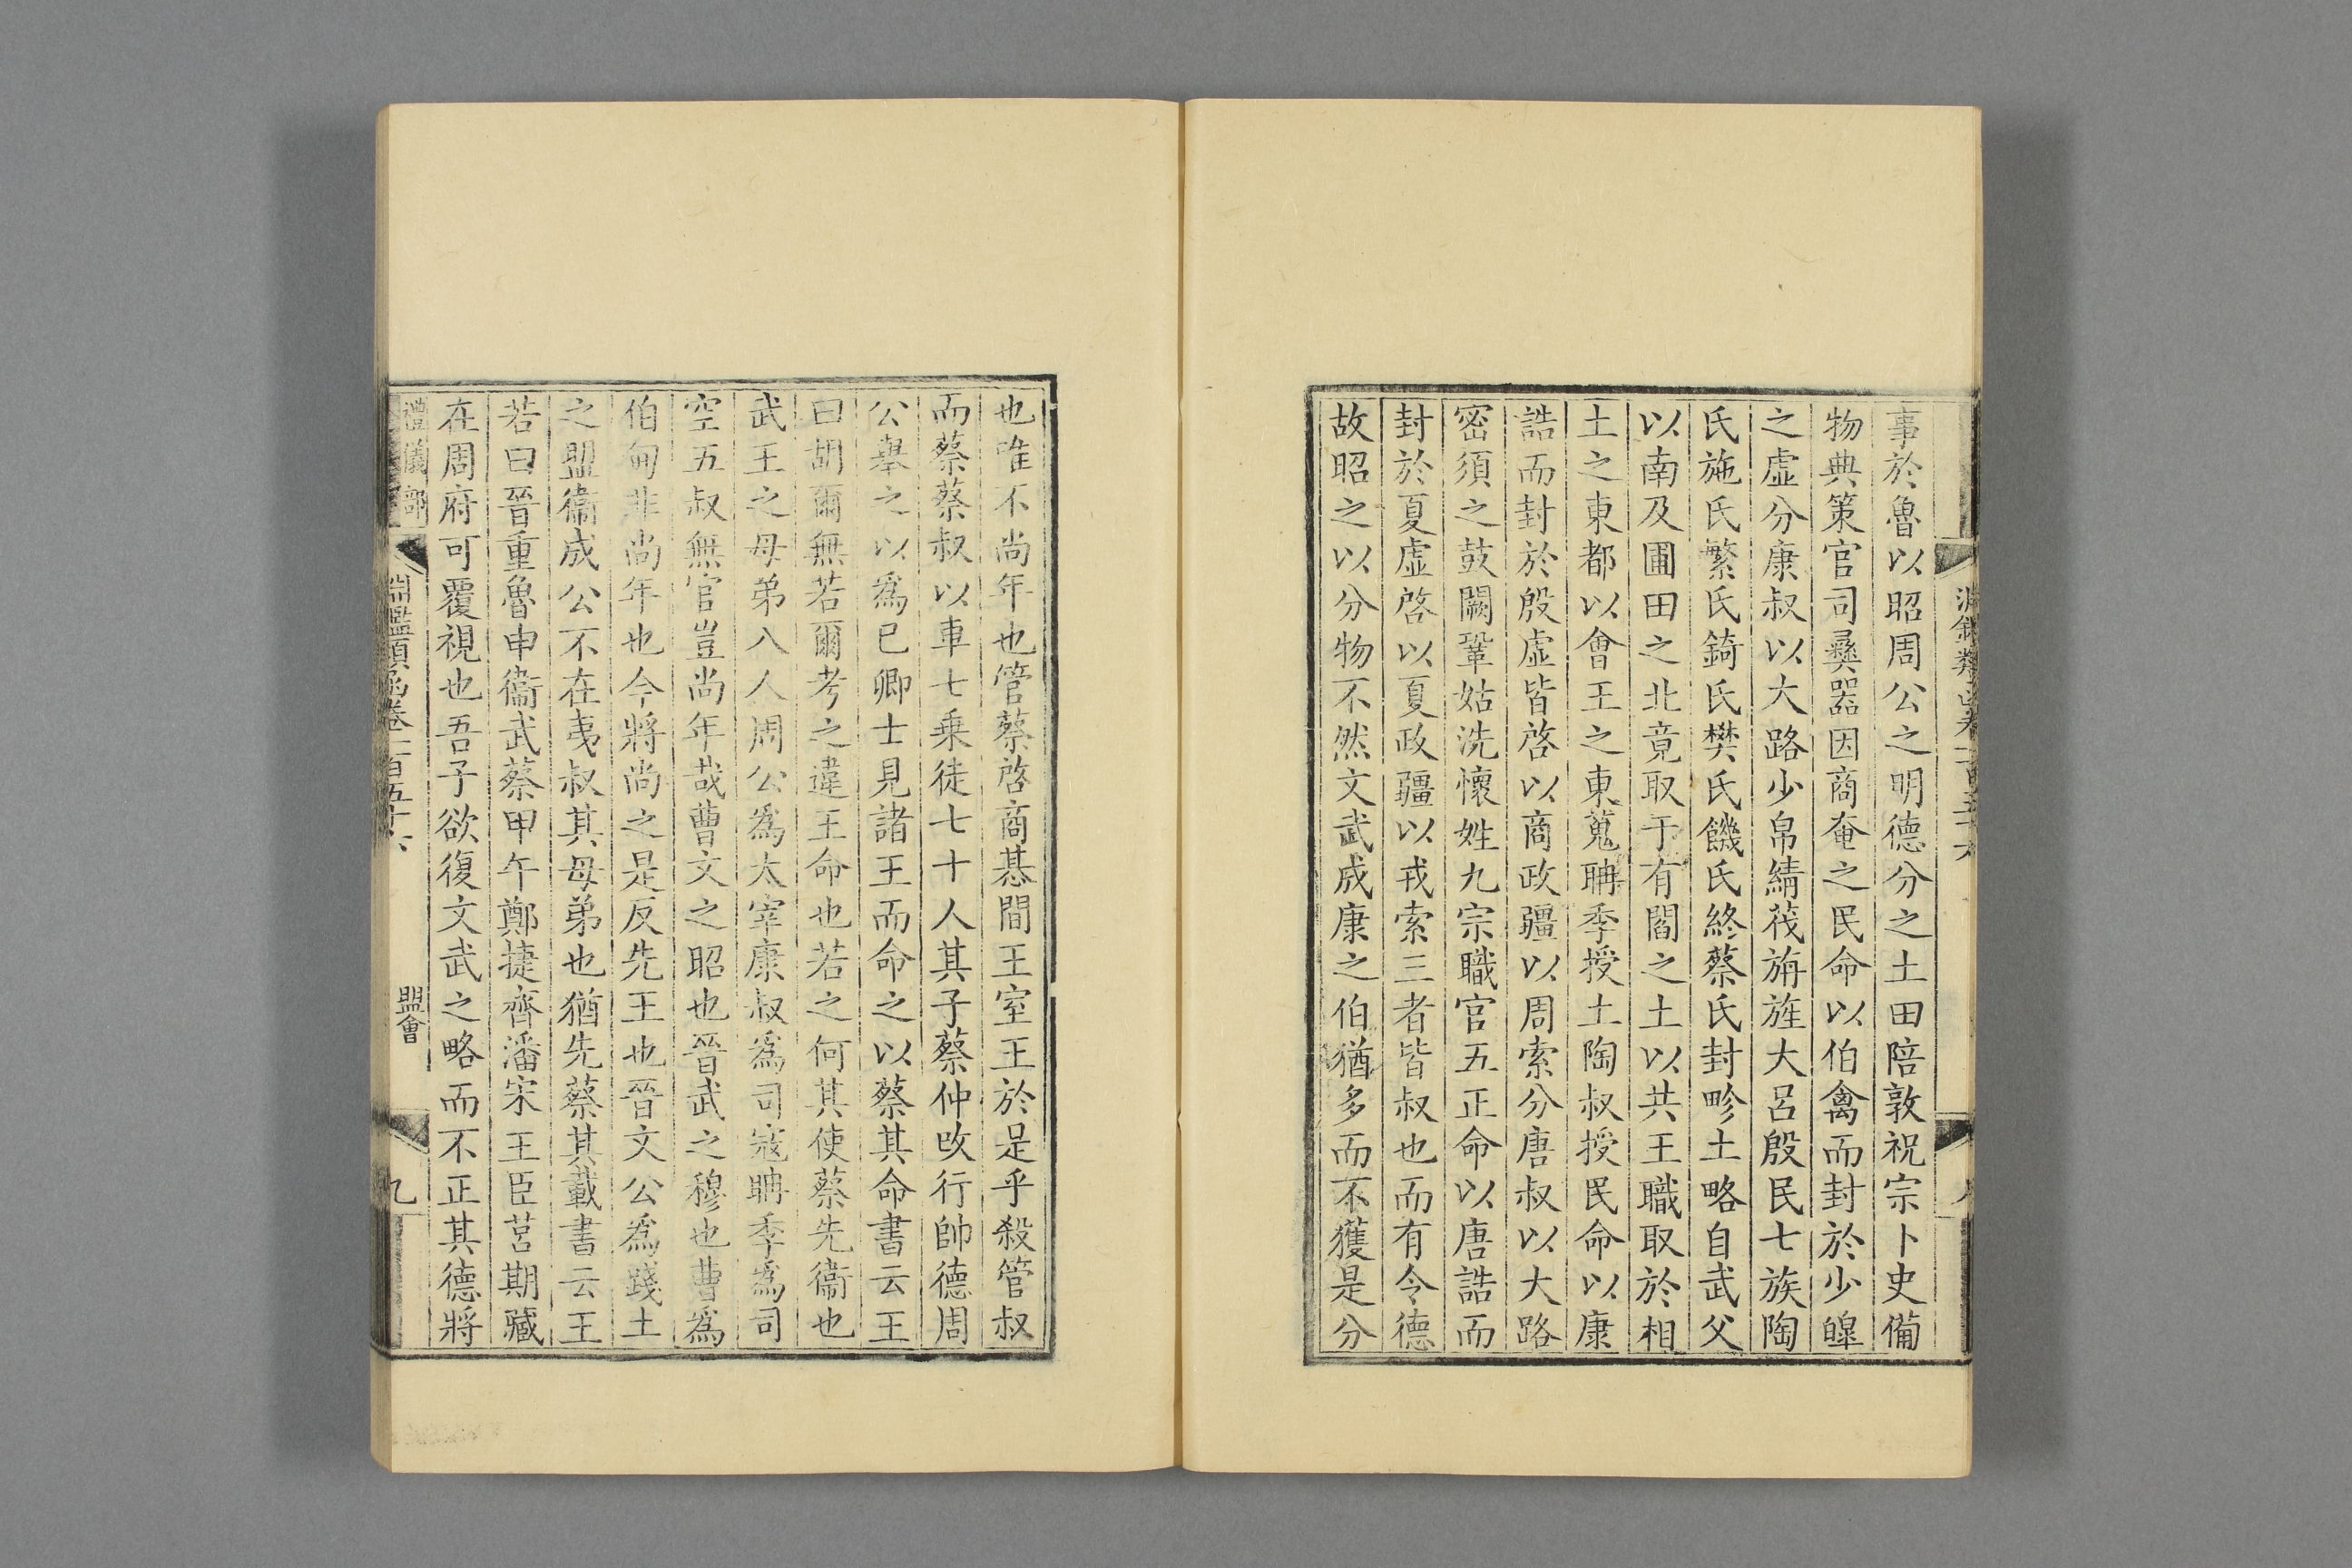 事於魯以昭周公之明德分之土田陪敦祝宗卜史備
物典策官司彞器因商奄之民命以伯禽而封於少皥
之虚分康叔以大路少帛綪茷旃旌大呂殷民七族陶
氏施氏繁氏錡氏樊氏饑氏終葵氏封畛土略自武父
以南及圃田之北竟取于有閻之土以共王職取於相
土之東都以會王之東蒐聃季授土陶叔授民命以康
誥而封於殷虚皆啓以商政疆以周索分唐叔以大路
密須之鼓闕鞏姑洗懷姓九宗職官五正命以唐誥而
封於夏虚啓以夏政疆以戎索三者皆叔也而有令德
故昭之以分物不然文武成康之伯猶多而不獲是分
也唯不尚年也管蔡啓商惎間王室王於是乎殺管叔
而蔡蔡叔以車七乗徒七十人其子蔡仲攺行帥德周
公舉之以爲已卿士見諸王而命之以蔡其命書云王
曰胡爾無若爾考之違王命也若之何其使蔡先衞也
武王之母弟八人周公爲太宰康叔爲司寇聃季爲司
空五叔無官豈尚年哉曹文之昭也晉武之穆也曹爲
伯甸非尚年也今將尚之是反先王也晉文公爲踐土
之盟衞成公不在夷叔其母弟也猶先蔡其載書云王
若曰晉重魯申衞武蔡甲午鄭捷齊潘宋王臣莒期藏
在周府可覆視也吾子欲復文武之略而不正其德將
禮儀部
淵鑑類函卷一百五十六
盟會
九